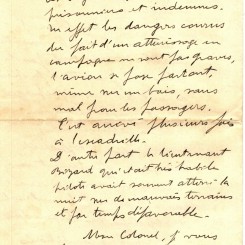 prisonniers et indemnes.
En effet les dangers courus
du fait d'un atterrissage en
campagne ne sont pas graves,
l'avion se pose partout,
même sur un bois, sans
mal pour les passagers.
C'est arrivé plusieurs fois
à l'escadrille.
D'autre part le lieutenant
qui était très habile
pilote avait souvent atterri la
nuit sur de mauvais terrains
et par temps défavorable.
Mon Colonel, je vous